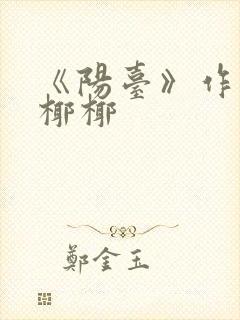 《陽臺》作
椰椰
鄭金玉